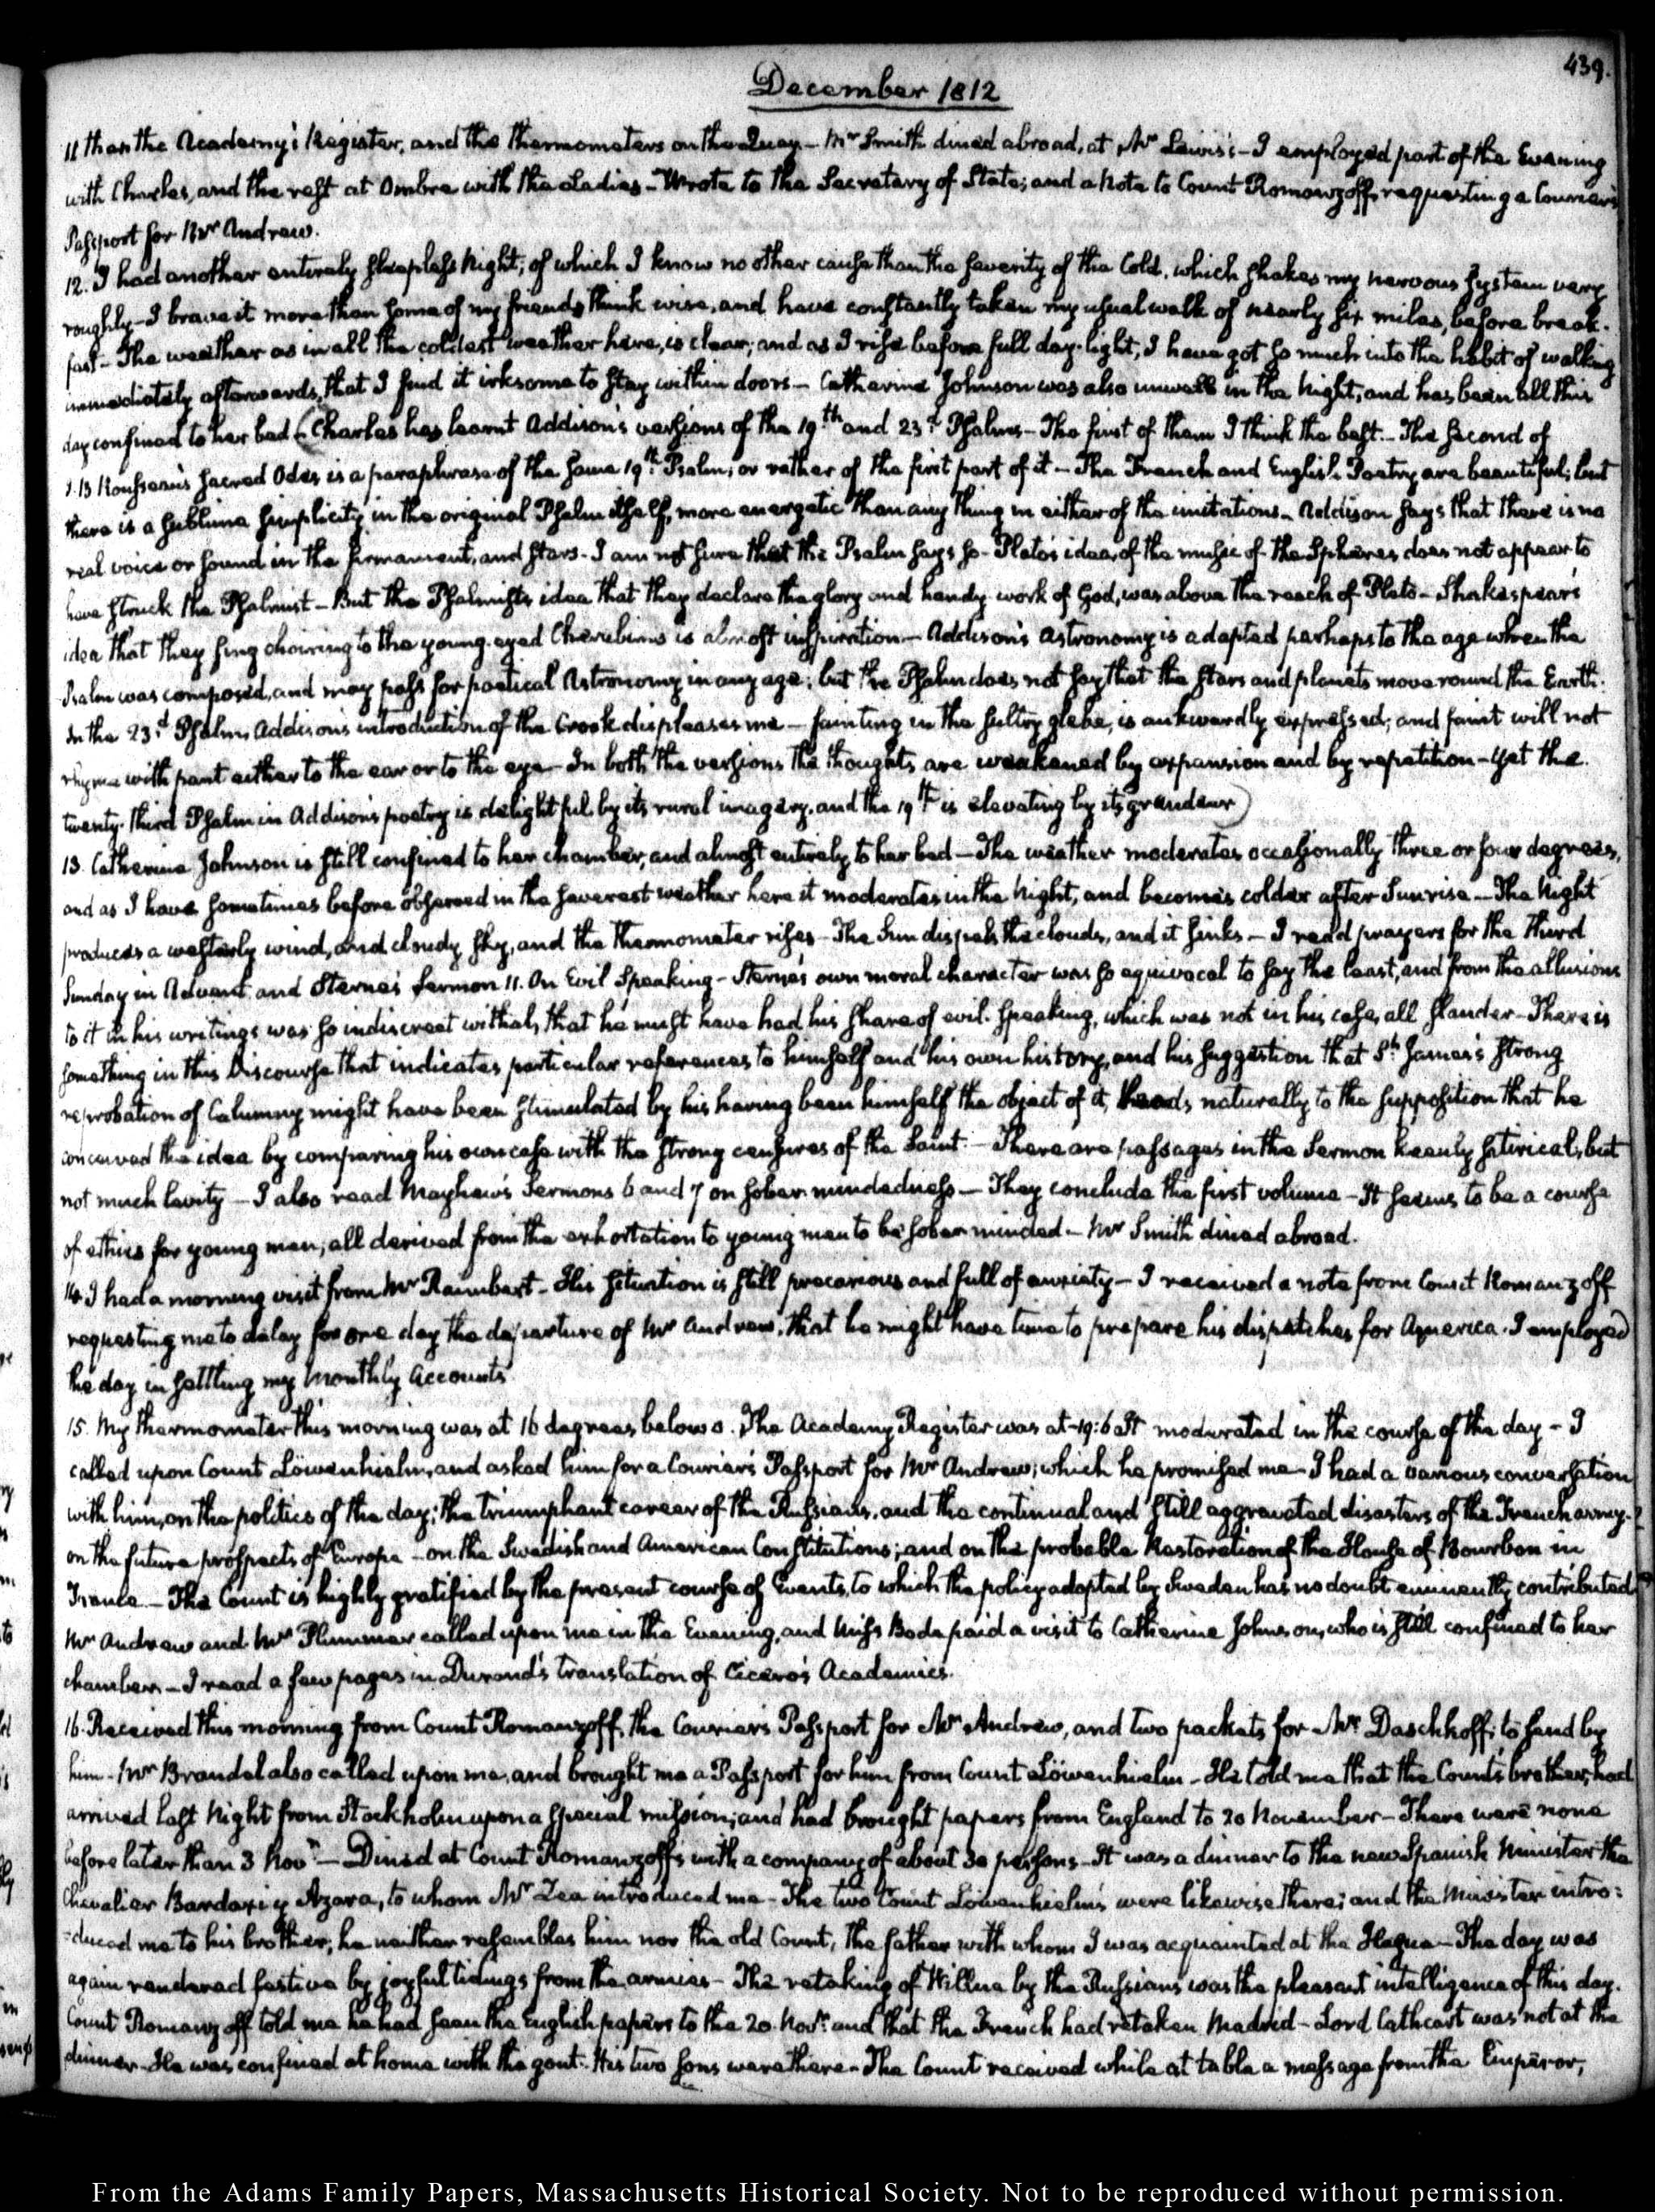 439.
December 1812
11 than the Academy's Register, and the thermometers on the Quay — Mr Smith dined abroad, at Mr Lewis's — I employed part of the Evening
with Charles, and the rest at Ombre with the Ladies — Wrote to the Secretary of State; and a Note to Count Romanzoff, requesting a Courier's
Passport for Mr Andrew.
12. I had another entirely sleepless Night; of which I know no other cause than the severity of the Cold, which shakes my nervous system very
roughly — I brave it more than some of my friends think wise, and have constantly taken my usual walk of nearly six miles, before break-
fast — The weather as in all the coldest weather here, is clear; and as I rise before full day-light, I have got so much into the habit of walking
immediately afterwards, that I find it irksome to stay within doors — Catherine Johnson was also unwell in the Night, and has been all this
day confined to her bed (Charles has learnt Addison's versions of the 19th and 23d Psalms — The first of them I think the best. — The second of
J. B. Rousseau's sacred Odes is a paraphrase of the same 19th Psalm; or rather of the first part of it — The French and English Poetry are beautiful; but
there is a sublime simplicity in the original Psalm itself, more energetic than any thing in either of the imitations — Addison says that there is no
real voice or sound in the firmament, and stars — I am not sure that the Psalm says so — Plato's idea, of the music of the Spheres does not appear to
have struck the Psalmist — But the Psalmist's idea that they declare the glory and handy-work of God, was above the reach of Plato — Shakespeare's
idea that they sing choiring to the young-eyed Cherubims is almost inspiration — Addison's astronomy is adapted perhaps to the age when the
Psalm was composed, and may pass for poetical Astronomy in any age; but the Psalm does not say that the stars and planets move round the Earth.
In the 23d Psalm, Addison's introduction of the Crook displeases me — fainting in the sultry glebe, is awkwardly expressed; and faint will not
rhyme with pant either to the ear or to the eye — In both the versions the thoughts are weakened by expansion and by repetition — Yet the
twenty-third Psalm in Addison's poetry is delightful by its rural imagery, and the 19th is elevating by its grandeur)
13. Catherine Johnson is still confined to her chamber, and almost entirely to her bed — The weather moderates occasionally three or four degrees,
and as I have sometimes before observed in the severest weather here it moderates in the Night, and becomes colder after Sunrise — The Night
produces a westerly wind, and cloudy sky, and the thermometer rises — The Sun dispels the clouds, and it sinks — I read prayers for the third
Sunday in Advent, and Sterne's Sermon 11. On Evil Speaking — Sterne's own moral character was so equivocal to say the least, and from the allusions
to it in his writings was so indiscreet withal, that he must have had his share of evil-speaking, which was not in his case, all slander — There is
something in this Discourse that indicates particular references to himself and his own history, and his suggestion that St James's strong
reprobation of Calumny might have been stimulated by his having been himself the object of it, leads naturally to the supposition that he
conceived the idea by comparing his own case with the strong censures of the Saint. — There are passages in the Sermon keenly satirical, but
not much levity — I also read Mayhew's Sermons 6 and 7 on sober-mindedness — They conclude the first volume — It seems to be a course
of ethics for young men, all derived from the exhortation to young men to be sober minded — Mr Smith dined abroad.
14. I had a morning visit from Mr Raimbert — His situation is still precarious and full of anxiety — I received a note from Count Romanzoff
requesting me to delay for one day the departure of Mr Andrew, that he might have time to prepare his dispatches for America. I employed
the day in settling my Monthly Accounts
15. My thermometer this morning was at 16 degrees below 0. The Academy Register was at -19:6 It moderated in the course of the day — I
called upon Count Löwenhielm, and asked him for a Courier's Passport for Mr Andrew; which he promised me — I had a various conversation
with him, on the politics of the day; the triumphant career of the Russians, and the continual and still aggravated disasters of the French army —
on the future prospects of Europe — on the Swedish and American Constitutions; and on the probable Restoration of the House of Bourbon in
France — The Count is highly gratified by the present course of Events, to which the policy adopted by Sweden has no doubt eminently contributed
Mr Andrew and Mr Plummer called upon me in the Evening, and Miss Bode paid a visit to Catherine Johnson, who is still confined to her
chamber — I read a few pages in Durand's translation of Cicero's Academics.
16. Received this morning from Count Romanzoff, the Courier's Passport for Mr Andrew, and two packets for Mr Daschkoff; to send by
him — Mr Brandel also called upon me, and brought me a Passport for him from Count Löwenhielm — He told me that the Count's brother, had
arrived last Night from Stockholm upon a special mission; and had brought papers from England to 20 November — There were none
before later than 3 Novr — Dined at Count Romanzoff's with a company of about 30 persons — It was a dinner to the new Spanish Minister the
Chevalier Bardaxi y Azara, to whom Mr Zea introduced me — The two Count Löwenhielms were likewise there; and the Minister intro:
:duced me to his brother; he neither resembles him nor the old Count, the father with whom I was acquainted at the Hague — The day was
again rendered festive by joyful tidings from the armies — The retaking of Willna by the Russians was the pleasant intelligence of this day.
Count Romanzoff told me he had seen the English papers to the 20. Novr. and that the French had retaken Madrid — Lord Cathcart was not at the
dinner — He was confined at home with the gout. His two sons were there — The Count received while at table a message from the Emperor,
From the Adams Family Papers, Massachusetts Historical Society. Not to be reproduced without permission.